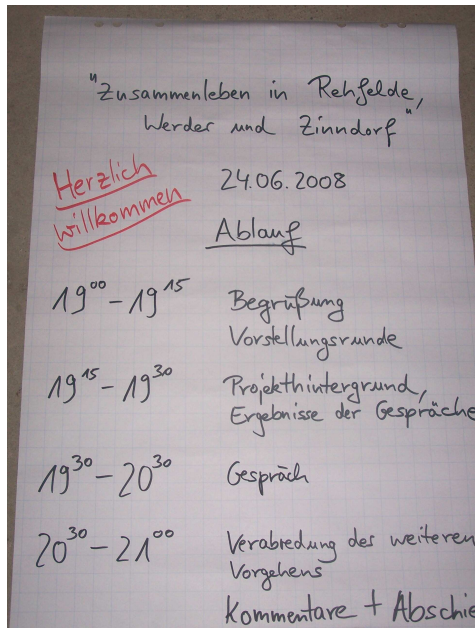 "Zusammenleben in Rehfelde,
Werder und Zinndorf"
Herzlich
willkommen
24.06.2008
Ablauf
19⁰⁰ – 19¹⁵ Begrüßung
Vorstellungsrunde
19¹⁵ – 19³⁰ Projekthintergrund,
Ergebnisse der Gespräche
19³⁰ – 20³⁰ Gespräch
20³⁰ – 21⁰⁰ Verabredung des weiteren
Vorgehens
Kommentare + Abschie